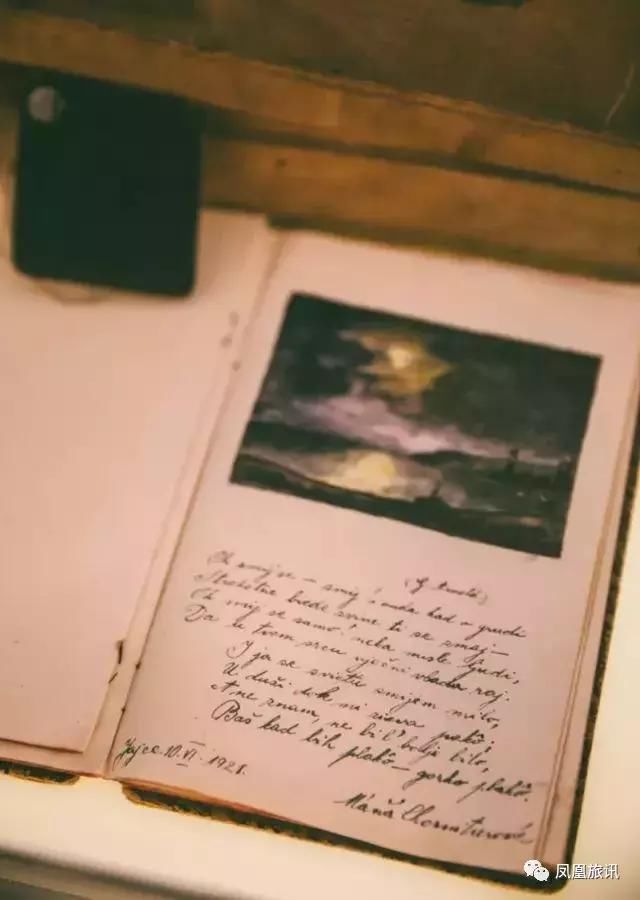 Oh smij se – smij! onda kad u grudi
Strahotne biede svine ti se zmaj –
Oh smij se samo! neka misle ljudi,
Da u tvom srcu vječni vlada raj.
I ja se svietu smijem milo,
U duši dok mi zieva pakô;
A ne znam, ne bil' bolje bilo,
Baš kad bih plakô – gorko plakô.
Jajce. 10. VI. 1921.
Máňa
凤凰旅讯